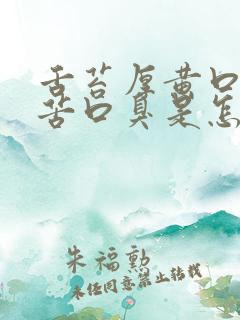 舌苔厚黄口
苦口臭是怎
朱福勲
未经同意禁止转载